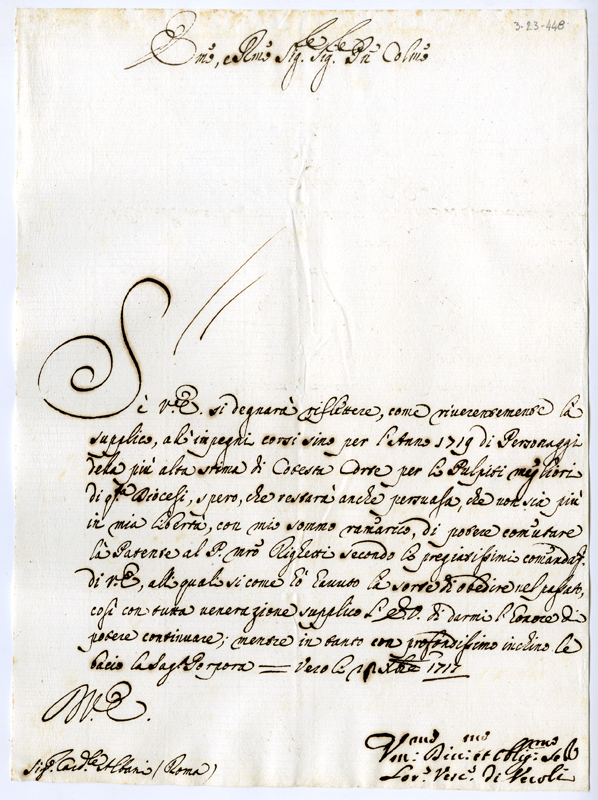 3-23-448
Em̃o, e Rm̃o Sig.re Sig.re Pñ Colm̃o
Sè V.E. si degnarà riflettere, come riverentemente la
supplico, alè inpegni corsi sino per l'Anno 1719 di Personaggi
dela più alta stima di Cotesta Corte per le Pulpiti megliori
di q.sta Diocesi, spero, che restarà anche persuasa, che non sia più
in mia libertà, con mio sommo ramarico, di potere com̃utare
la Patente al P. mr̃o Righetti secondo le pregiatissimi comanda.ti
di V.E., alle quale si come hò havuto la sorte di obedire nel passato,
così con tutta veneratione supplico l'E.V. di darmi l'honore di
potere continuare; mentre in tanto con profondissimo inchino le
bacio la Sag.ta Porpora = Vero le 1717
D.V.E.
Sig.r Card.le Albani (Roma)
Vm̃o: Div: et Oblig: Ser
Lor.o Vesc.o di Veroli